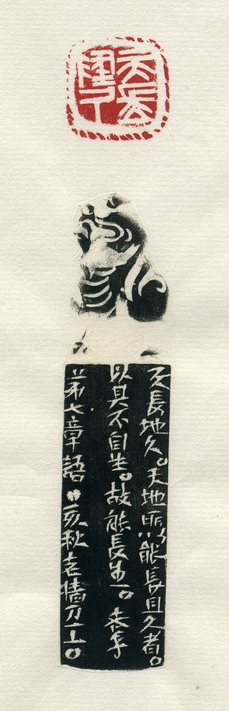 天長地久
天長地久。天地所以能長且久者。
以其不自生。故能長生。老子
第七章語。亥秋老牆刀工。